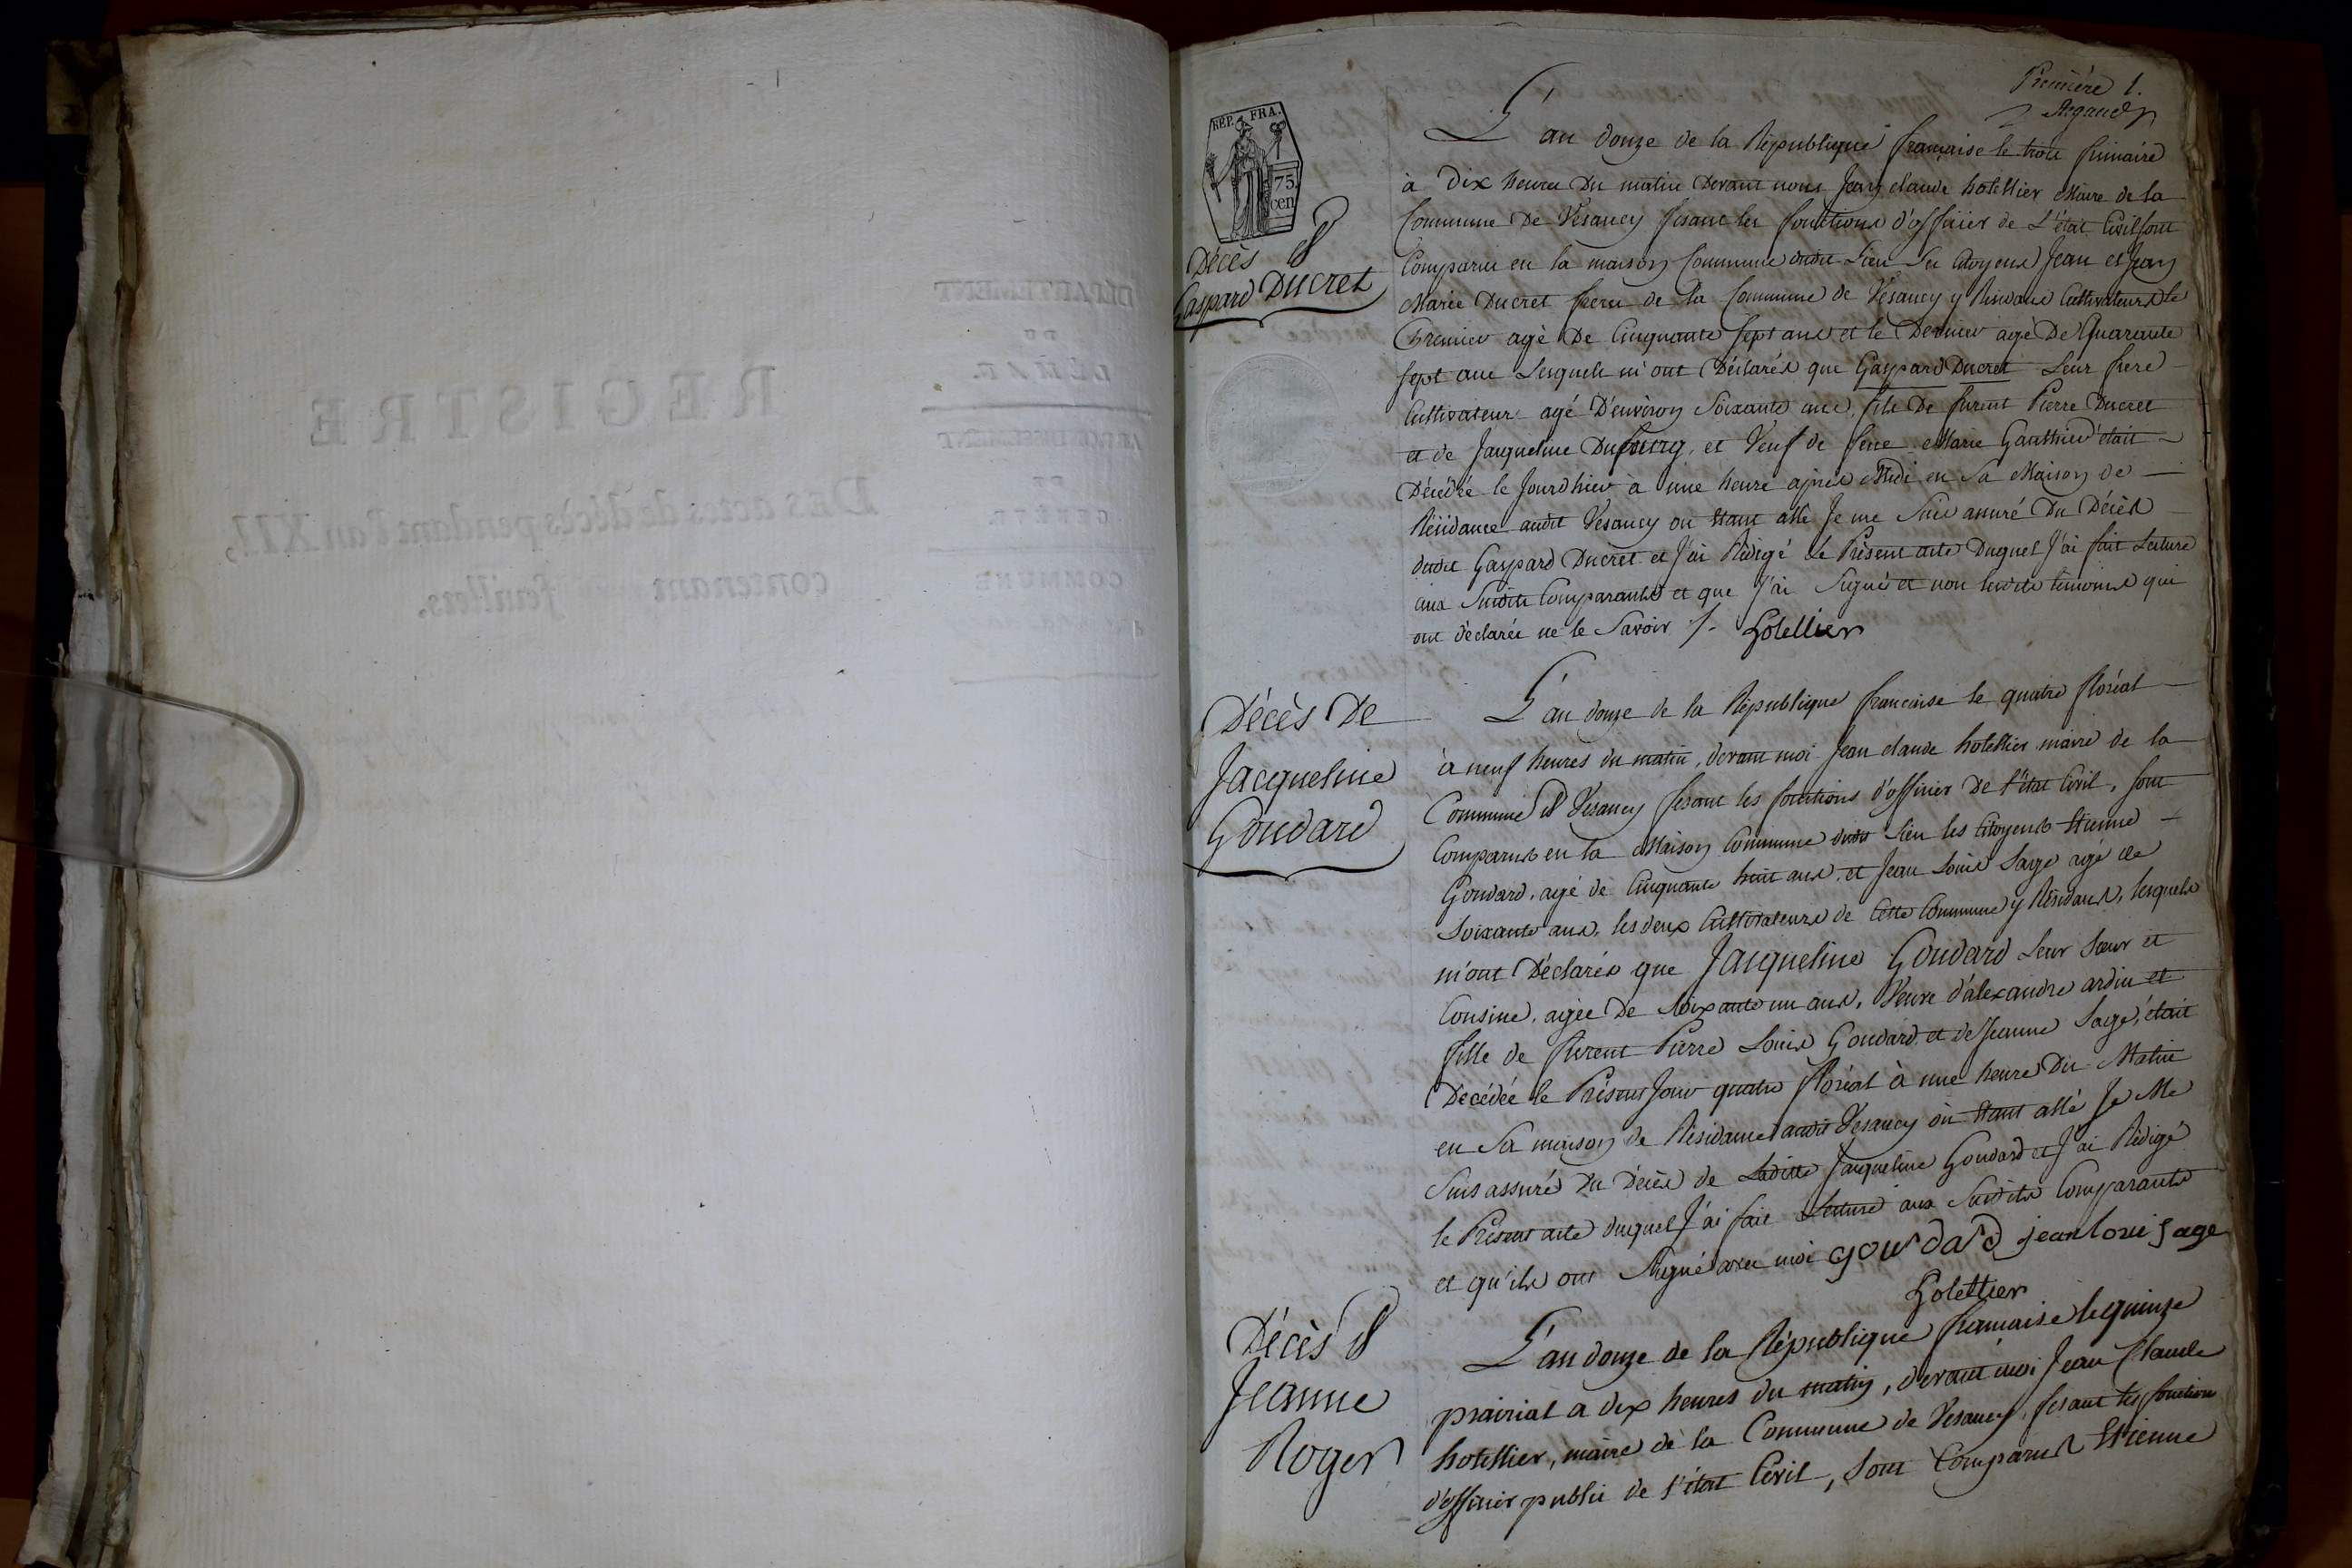 Première 1.
REP. FRA.
75
cen
L'an douze de la République française le trois frimaire
à Dix heures Du matin Devant nous Jean claude hotellier Maire de la
Commune De Vesancy fesant les fonctions d'officier de L'état Civil sont
Décès de
Gaspard Ducret
Comparus en la maison Commune dudit Lieu Les Citoyens Jean et Jean
Marie Ducret freres de la Commune de Vesancy y Résidans Cultivateurs le
Premier agé De Cinquante sept ans et le Dernier agé De Quarante
sept ans Lesquels m'ont Déclarés que Gaspard Ducret Leur frere
Cultivateur agé D'environ Soixante ans, fils De furent Pierre Ducret
et de Jaqueline Dufourg, et Veuf de feue Marie Gauthier était
Décédée le Jourdhier à une heure après Midi en Sa Maison de
Résidance audit Vesancy ou étant allé Je me Suis assuré Du Décès
dudit Gaspard Ducret et J'ai Rédigé le Présent acte Duquel J'ai fait Lecture
aux Susdits Comparants et que J'ai Signé et non lesdits temoins qui
ont déclarés ne le Savoir /. Hotellier
Décès De
Jacqueline
Goudard
L'an douze de la République francaise le quatre floréal
à neuf heures du matin, devant moi Jean claude hotellier maire de la
Commune de Vesancy fesant les fonctions d'officier De l'état Civil, sont
Comparus en la Maison Commune dudit Lieu les Citoyens Etienne
Goudard, agé de Cinquante huit ans, et Jean Louis Sage agé de
Soixante ans, les deux Cultivateurs de Cette Commune y Résidans, lesquels
m'ont Déclarés que Jaqueline Goudard Leur Sœur et
Cousine, agée De Soixante un ans, Veuve d'alexandre ardin et
fille de furent Pierre Louis Goudard et de Jeanne Sage, était
Decédée le Présent Jour quatre floréal à une heure Du Matin
en Sa maison de Résidance audit Vesancy ou étant allé Je Me
Suis assuré Du Décès de Laditte Jaqueline Goudard et J'ai Rédigé
le Présent acte duquel J'ai fait Lecture aux Susdits Comparants
et qu'ils ont Signé avec moi gouдard jean loui sage
Hotellier
Décès de
Jeanne
Roger
L'an douze de la République francaise le quinze
prairial a dix heures du matin, devant moi Jean Claude
hotellier, maire de la Commune de Vesancy, fesant les fonctions
d'officier public de l'état Civil, sont Comparus Etienne
DÉPARTEMENT
DU
LÉMAN.
ARRONDISSEMENT
DE
GENÈVE.
COMMUNE
REGISTRE
DES actes de décès pendant l'an XII,
contenant feuillets.